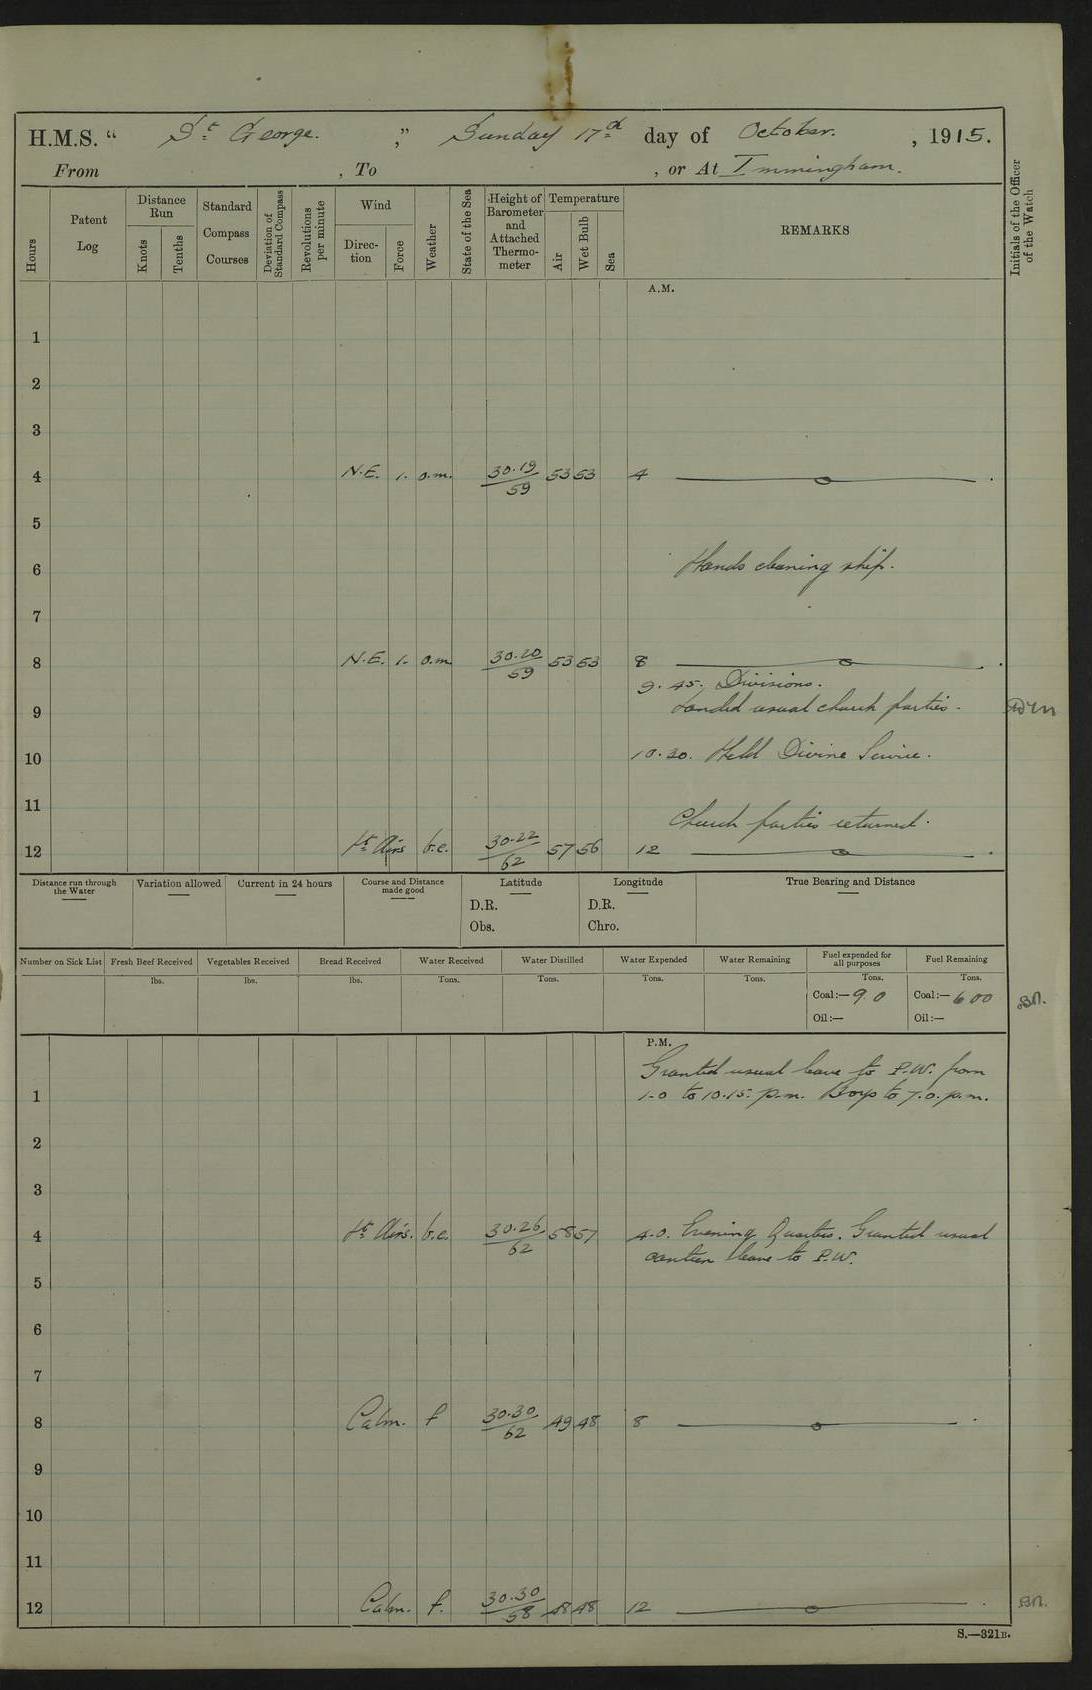 H.M.S. “ St George. ” Sunday 17th day of October. , 1915.
From , To , or At Immingham.
Hours
Patent Log
Distance Run
Knots
Tenths
Standard Compass Courses
Deviation of Standard Compass
Revolutions per minute
Wind
Direc-tion
Force
Weather
State of the Sea
Height of Barometer and Attached Thermo-meter
Temperature
Air
Wet Bulb
Sea
REMARKS
Initials of the Officer of the Watch
A.M.
1
2
3
4 N.E. 1. o.m. 30.19/59 53 53 4
5
6 Hands cleaning ship.
7
8 N.E. 1. o.m. 30.20/59 53 53 8
9.45. Divisions.
9 Landed usual church parties.
10 10.30. Held Divine Service.
11 Church parties returned.
12 Lt Airs b.c. 30.22/62 57 56 12
Distance run through the Water
Variation allowed
Current in 24 hours
Course and Distance made good
Latitude
D.R.
Obs.
Longitude
D.R.
Chro.
True Bearing and Distance
Number on Sick List
Fresh Beef Received
lbs.
Vegetables Received
lbs.
Bread Received
lbs.
Water Received
Tons.
Water Distilled
Tons.
Water Expended
Tons.
Water Remaining
Tons.
Fuel expended for all purposes
Tons.
Coal:— 90
Oil:—
Fuel Remaining
Tons.
Coal:— 600
Oil:—
P.M.
Granted usual leave to P.W. from
1 1.0 to 10.15. p.m. Boys to 7.0. p.m.
2
3
4 Lt Airs. b.c. 30.26/62 58 57 4.0. Evening Quarters. Granted usual
canteen leave to P.W.
5
6
7
8 Calm. f 30.30/62 49 48 8
9
10
11
12 Calm. f. 30.30/58 48 48 12
S.—321B.